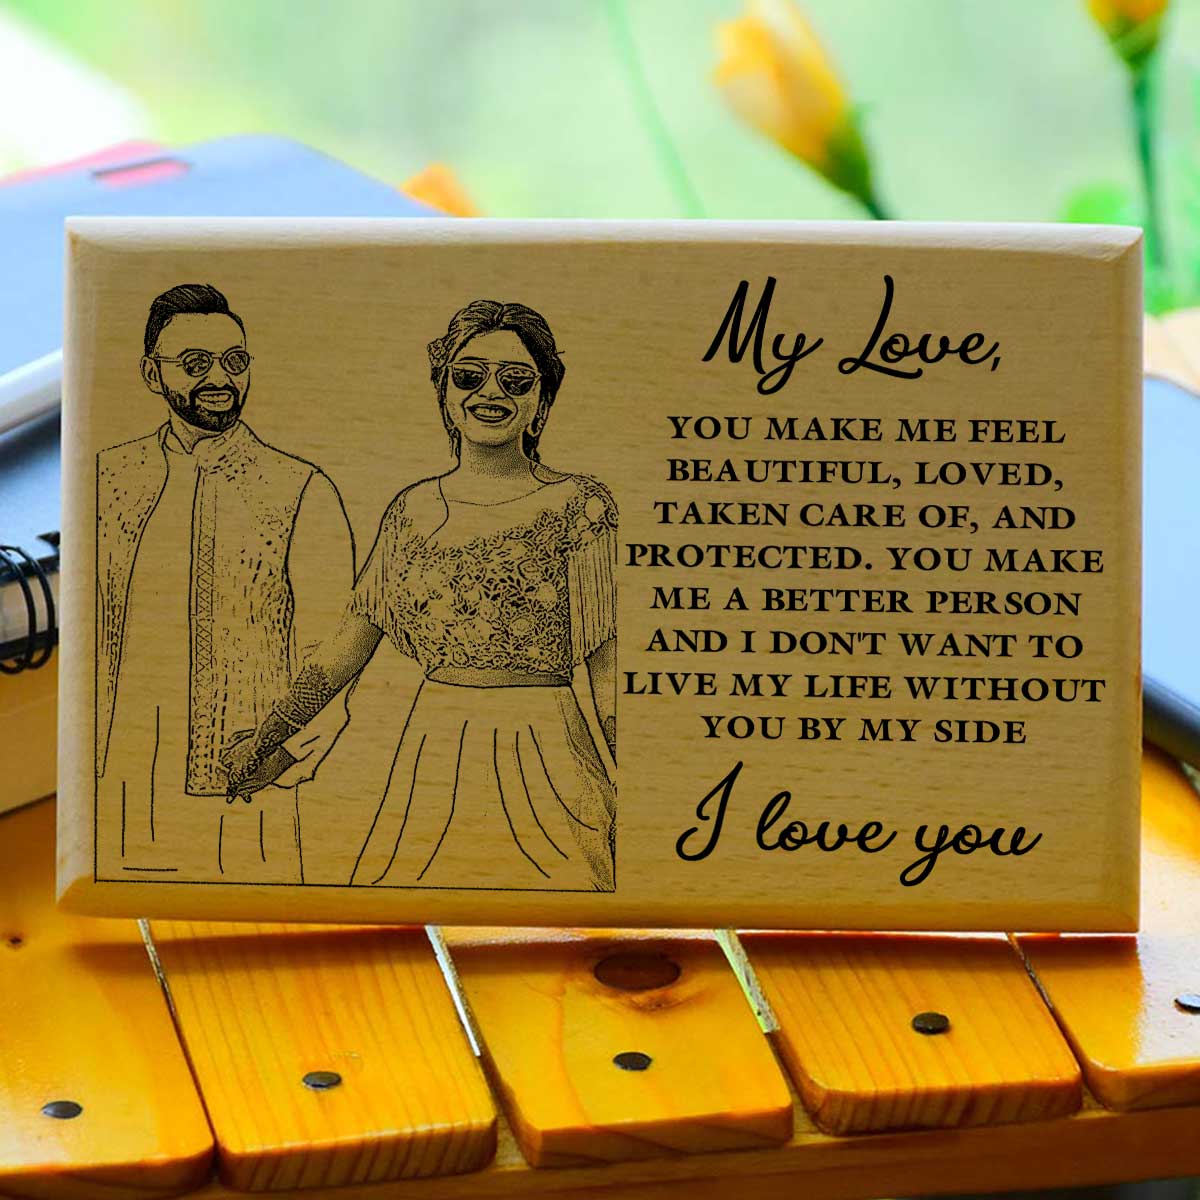 My Love,
YOU MAKE ME FEEL
BEAUTIFUL, LOVED,
TAKEN CARE OF, AND
PROTECTED. YOU MAKE
ME A BETTER PERSON
AND I DON'T WANT TO
LIVE MY LIFE WITHOUT
YOU BY MY SIDE
I love you